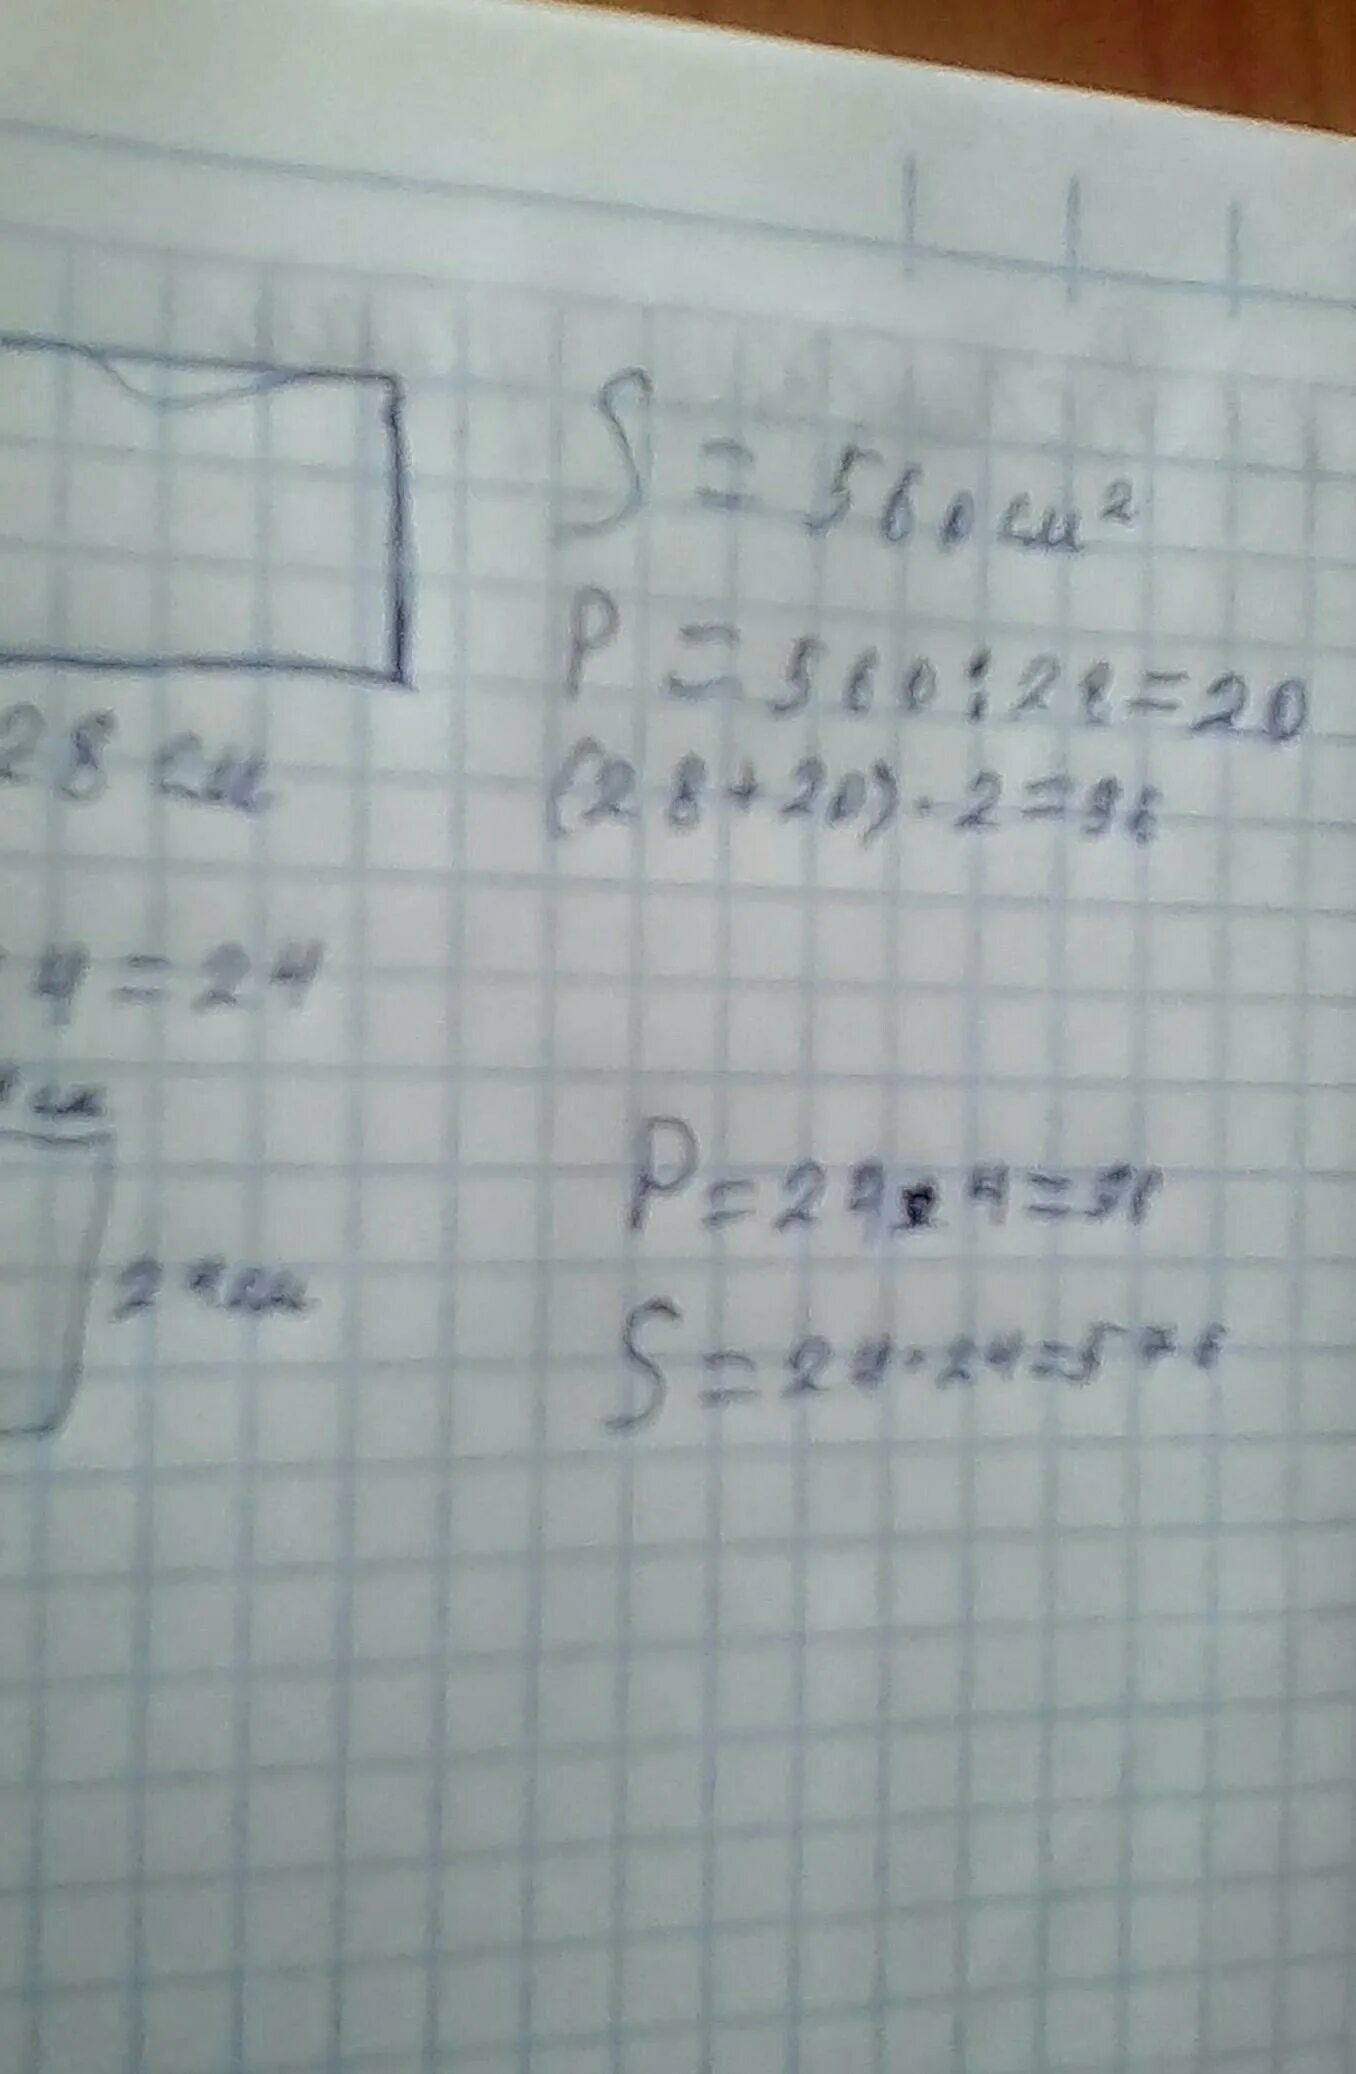 S = 560 см²
P = 560 : 28 = 20
28 см
(28 + 20) · 2 = 96
4 = 24
см
P = 24 · 4 = 96
24 см
S = 24 · 24 = 576